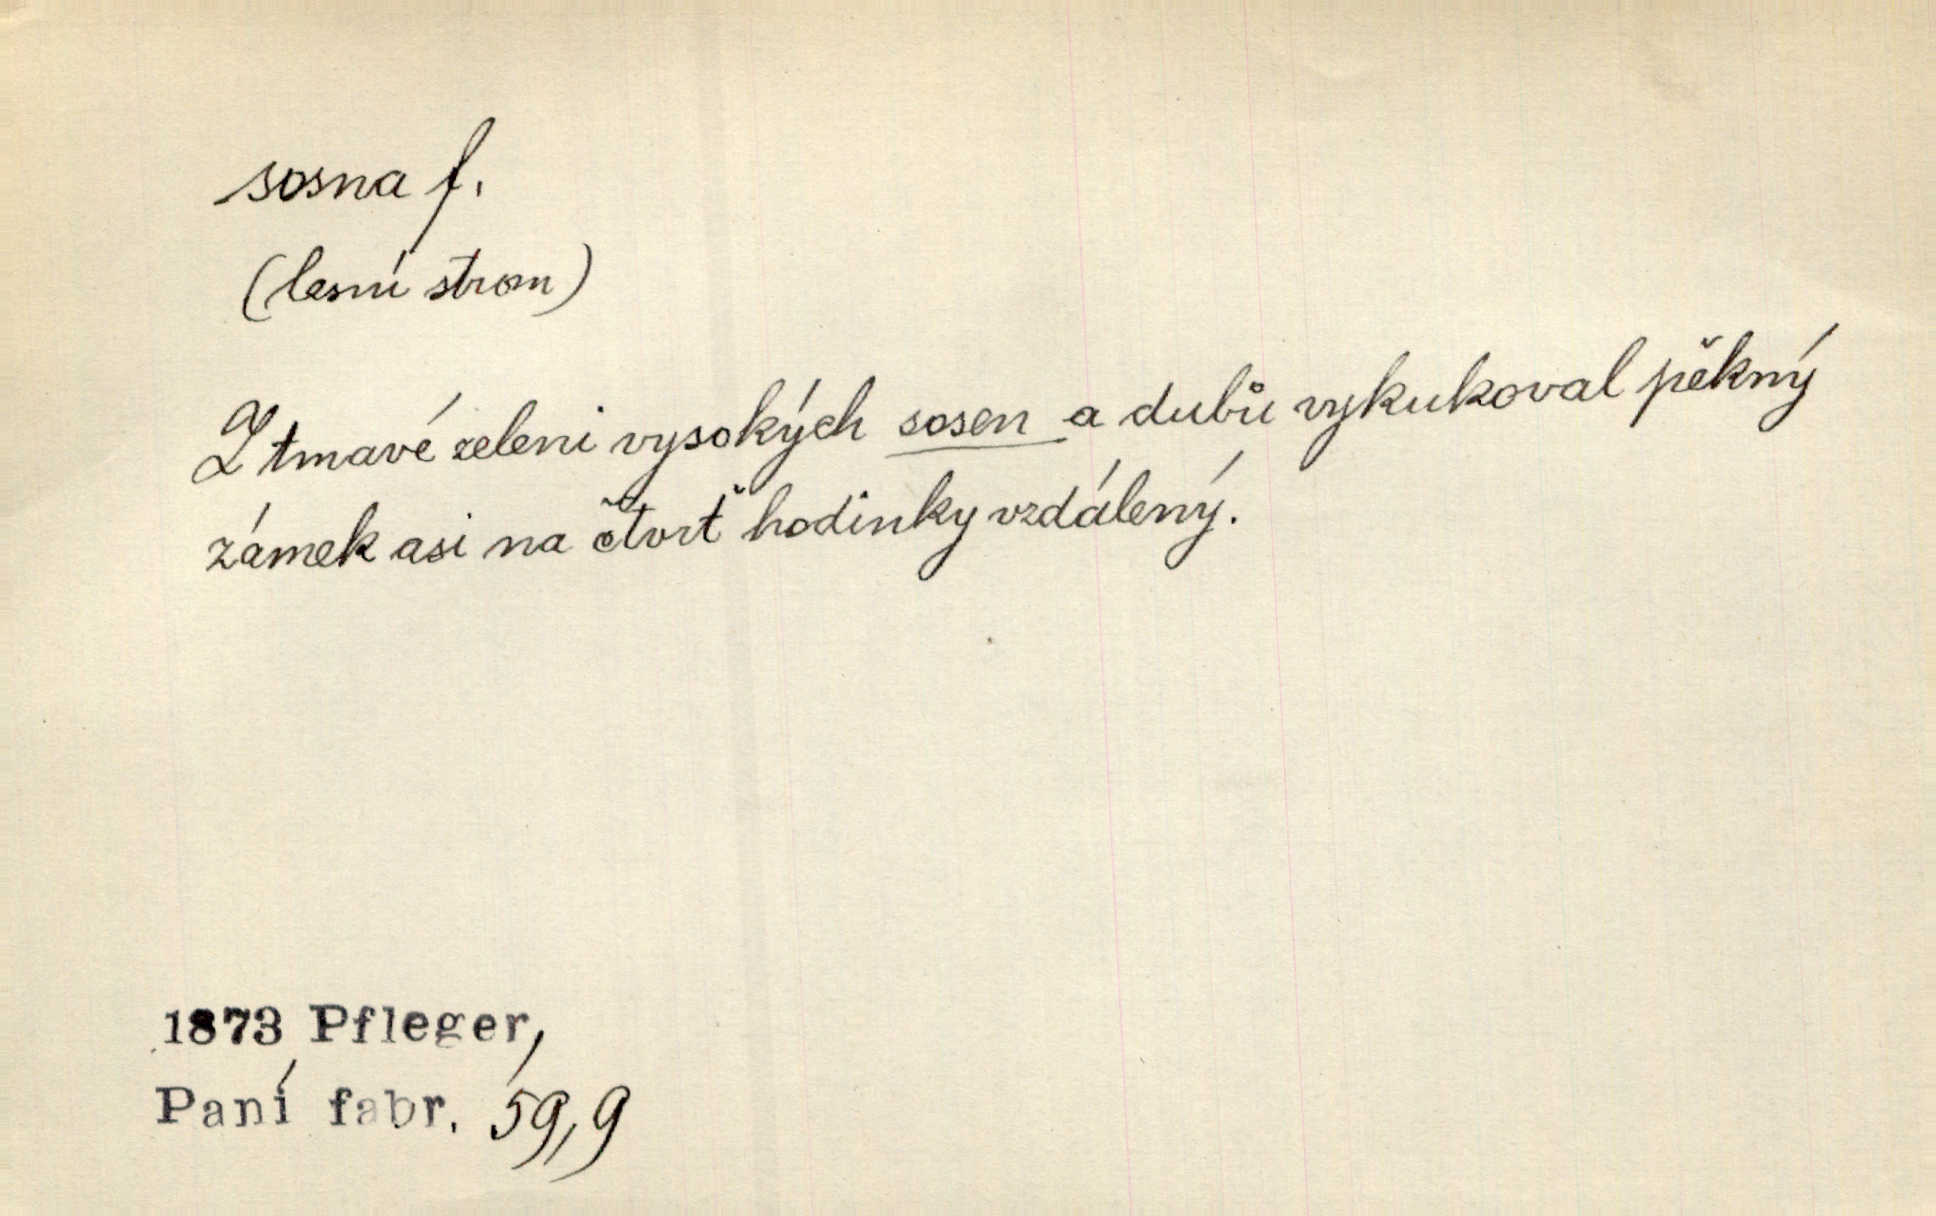 sosna f.
(lesní strom)
Z tmavé zeleni vysokých sosen a dubů vykukoval pěkný
zámek asi na čtvrť hodinky vzdálený.
1873 Pfleger,
Paní fabr. 59,9